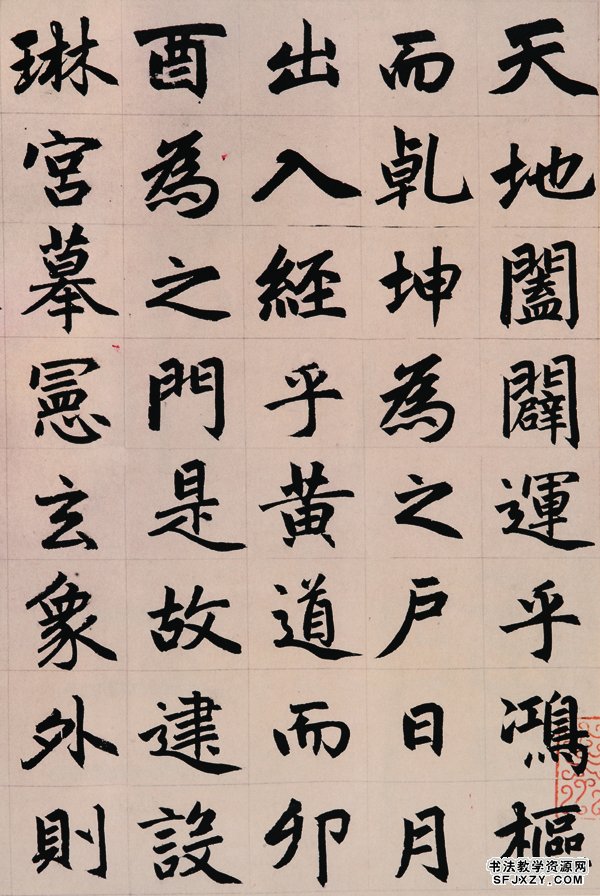 天地闔闢運乎鴻樞
而乹坤為之戶日月
出入經乎黃道而卯
酉為之門是故建設
琳宮摹憲玄象外則
书法教学资源网
SFJXZY.COM